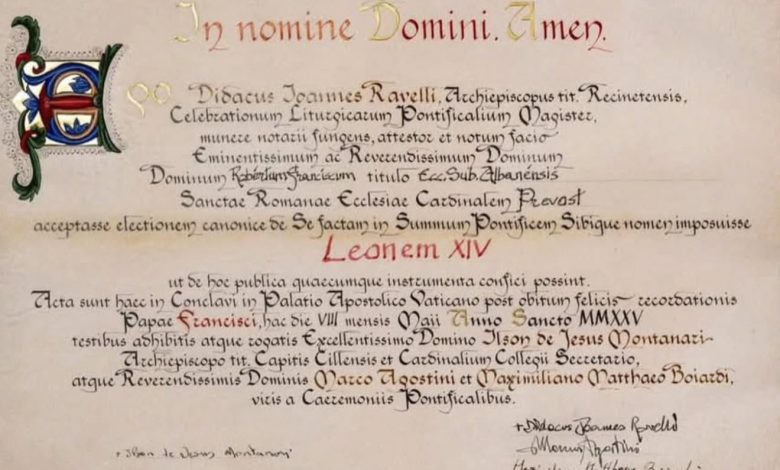 In nomine Domini. Amen.
Ego Didacus Joannes Ravelli, Archiepiscopus tit. Recinetensis,
Celebrationum Liturgicarum Pontificalium Magister,
munere notarii fungens, attestor et notum facio
Eminentissimum ac Reverendissimum Dominum
Dominum Robertum Franciscum titulo Ecc. Sub. Albanensis
Sanctae Romanae Ecclesiae Cardinalem Prevost
acceptasse electionem canonice de Se factam in Summum Pontificem Sibique nomen imposuisse
Leonem XIV
ut de hoc publica quaecumque instrumenta confici possint.
Acta sunt haec in Conclavi in Palatio Apostolico Vaticano post obitum felicis recordationis
Papae Francisci, hac die VIII mensis Maii Anno Sancto MMXXV
testibus adhibitis atque rogatis Excellentissimo Domino Ilson de Jesus Montanari
Archiepiscopo tit. Capitis Cillensis et Cardinalium Collegii Secretario,
atque Reverendissimis Dominis Marco Agostini et Maximiliano Matthaeo Boiardi,
viris a Caeremoniis Pontificalibus.
+ Didacus Joannes Ravelli
Marcus Agostini
+ Ilson de Jesus Montanari